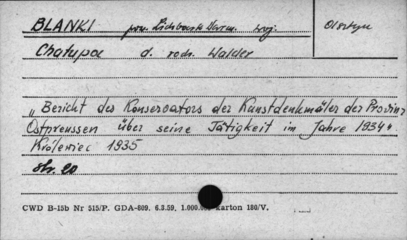 BLANKI pow. Lidzbark Warm. woj. Olsztyn
Chałupa d. rodz. Walder
„Bericht des Konservators der Kunstdenkmäler der Provinz
Ostpreussen über seine Tätigkeit im Jahre 1934"
Królewiec 1935
str. 20
CWD B-15b Nr 515/P. GDA-809. 6.3.59. 1.000.000 karton 180/V.